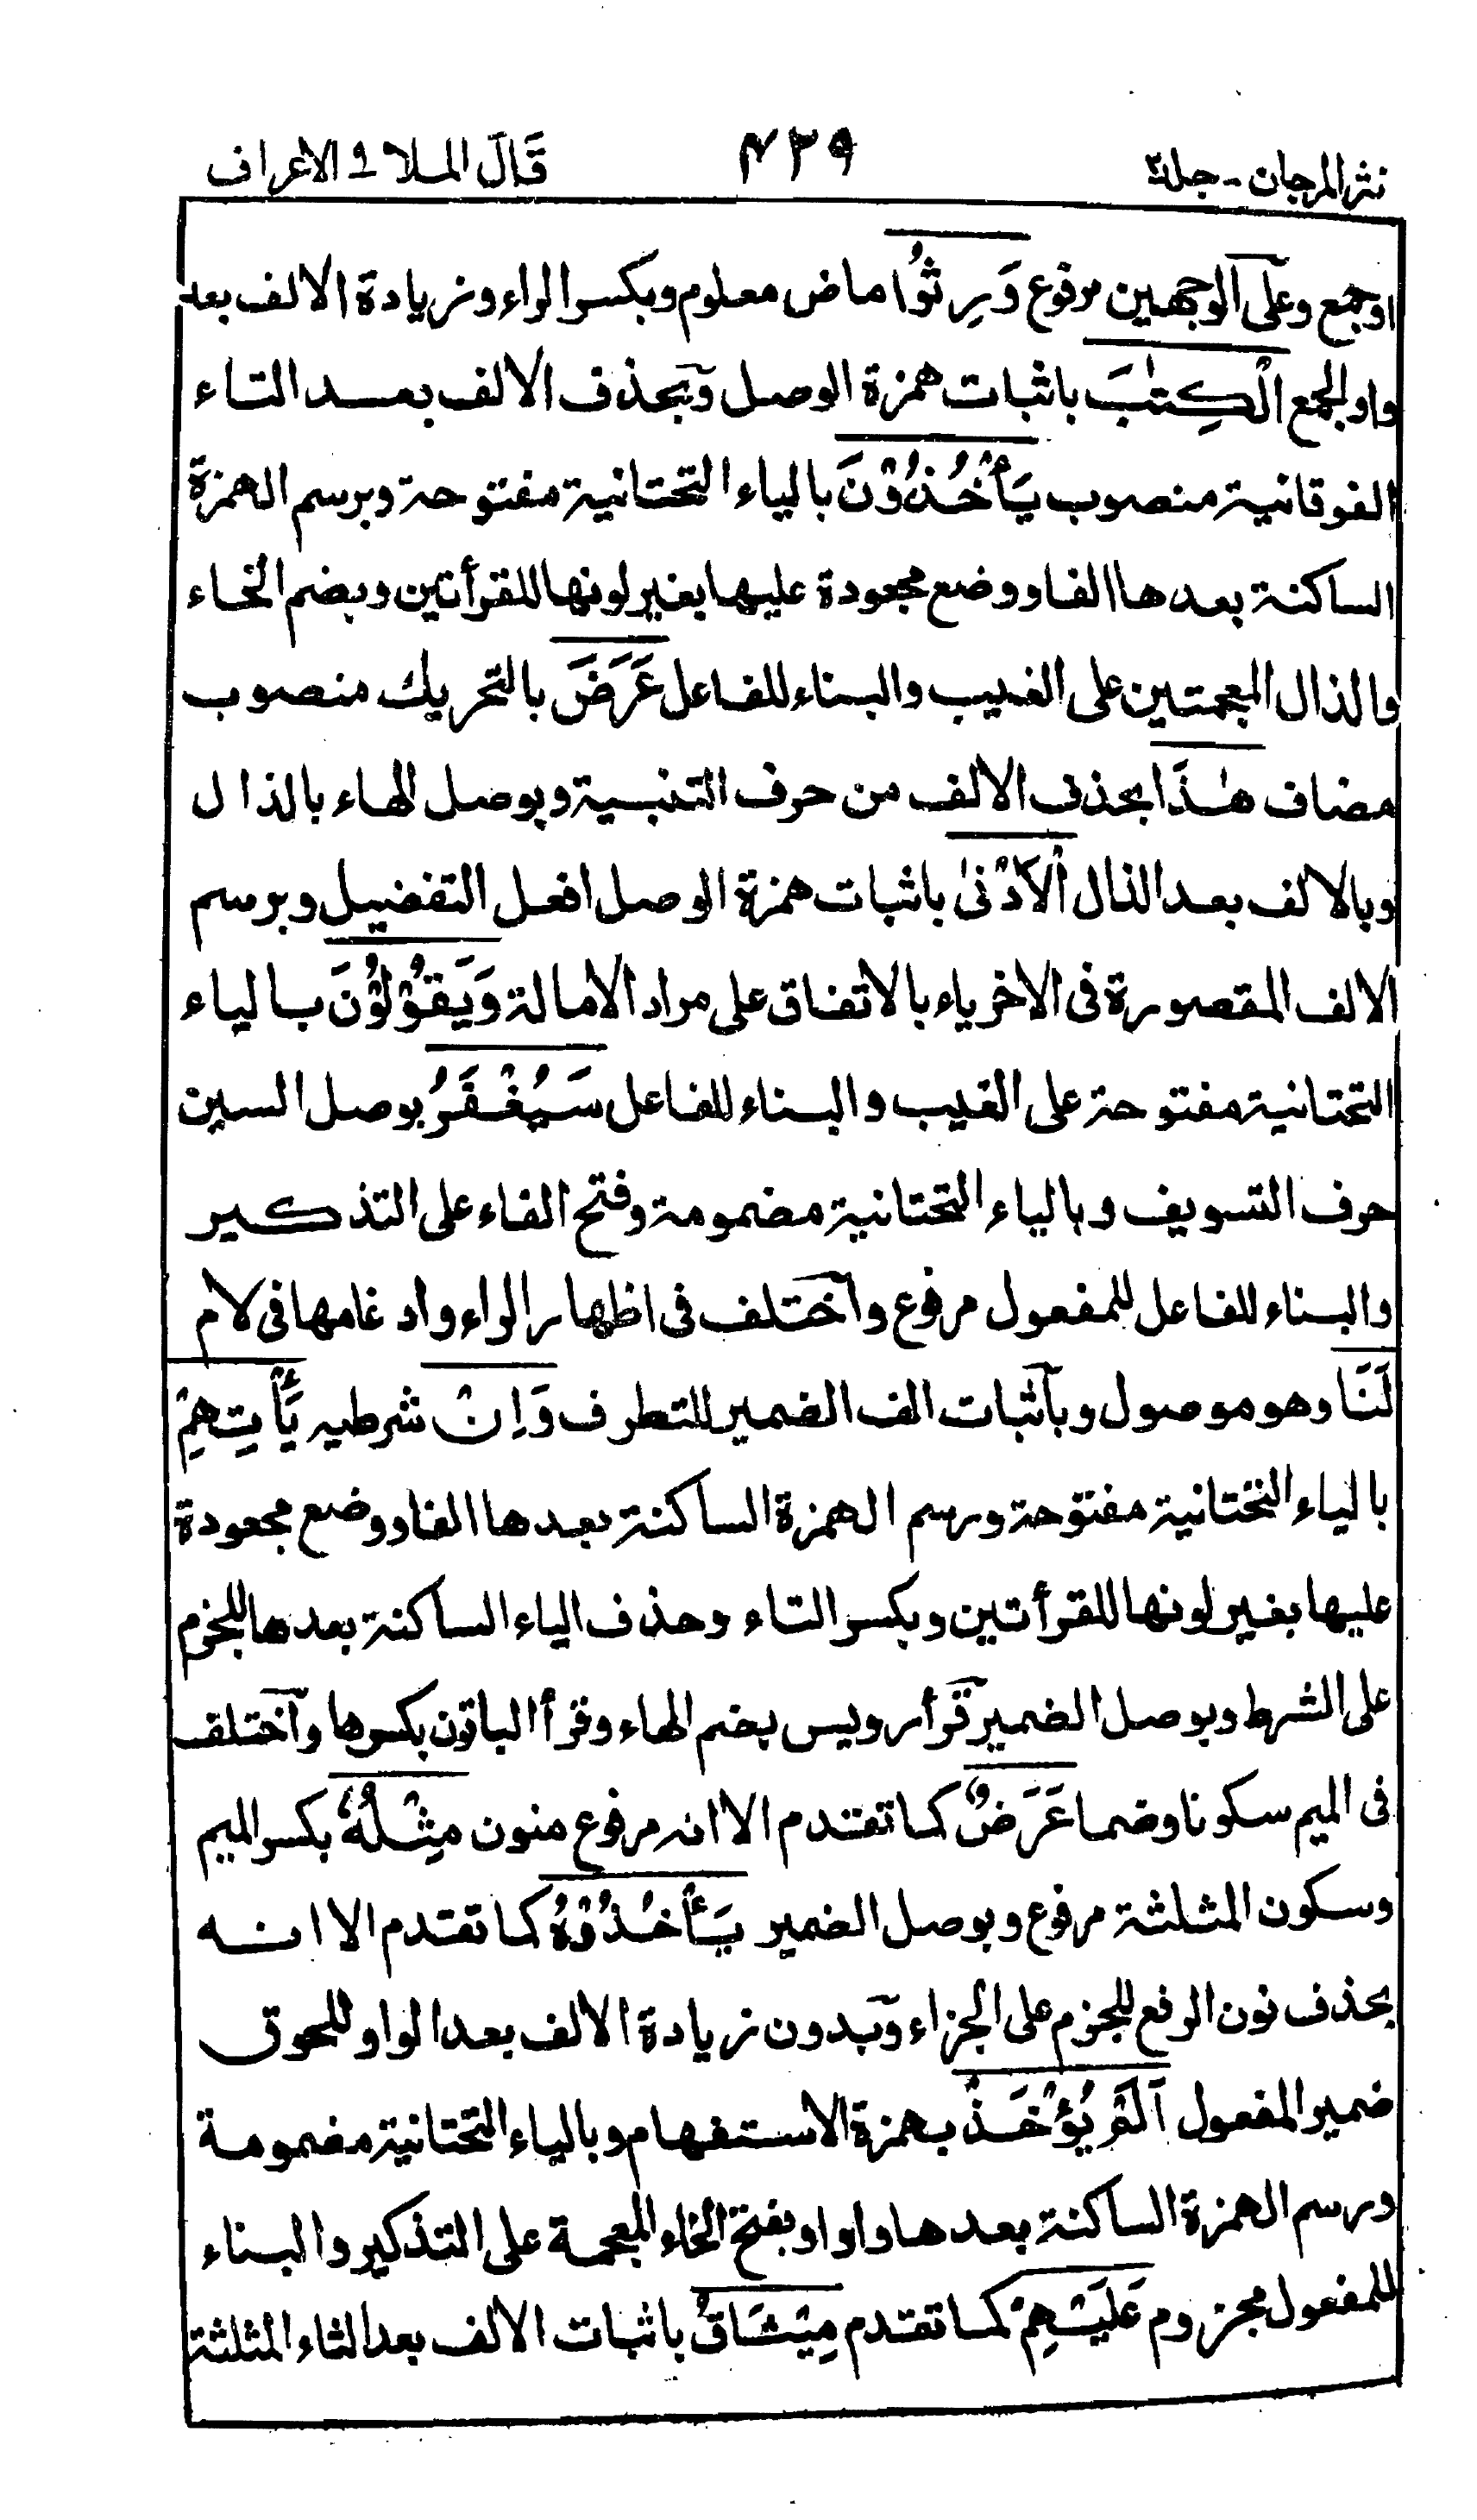 نثر المرجان - جلد٢
٤٣٩
قَالَ الملا ٩ الاعراف
اوجمع وعلى الوجهين مرفوع وَرِثُوْا ماض معلوم وبكسر الراء وزيادة الالف بعد
واو الجمع الْكِتٰبَ باثبات همزة الوصل وبحذف الالف بعد التاء
الفوقانية منصوب يَأْخُذُوْنَ بالياء التحتانية مفتوحة وبرسم الهمزة
الساكنة بعدها الفا ووضع مجعودة عليها بغير لونها للقرأتين وبضم الخاء
والذال المعجمتين على الغيب والبناء للفاعل عَرَضَ بالتحريك منصوب
مضاف هٰذَا بحذف الالف من حرف التنبيه وبوصل الهاء بالذال
وبالالف بعد الذال الْاَدْنٰى باثبات همزة الوصل افعل التفضيل وبرسم
الالف المقصورة فى الاخر ياء بالاتفاق على مراد الامالة وَيَقُوْلُوْنَ بالياء
التحتانية مفتوحة على الغيب والبناء للفاعل سَيُغْفَرُ بوصل السين
حرف التسويف وبالياء التحتانية مضمومة وفتح الفاء على التذكير
والبناء للفاعل للمفعول مرفوع واختلف فى اظهار الراء وادغامها فى لام
لَنَا وهو موصول وباثبات الف الضمير للتطرف وَاِنْ شرطيه يَّأْتِهِمْ
بالياء التحتانية مفتوحة ورسم الهمزة الساكنة بعدها الفا ووضع مجعودة
عليها بغير لونها للقرأتين وبكسر التاء وحذف الياء الساكنة بعدها للجزم
على الشرط وبوصل الضمير قرأ رويس بضم الهاء وقرأ الباقون بكسرها واختلف
فى الميم سكونا وضما عَرَضٌ كما تقدم الا انه مرفوع منون مِثْلُهٗ بكسر الميم
وسكون المثلثة مرفوع وبوصل الضمير يَأْخُذُوْهُ كما تقدم الا انه
بحذف نون الرفع للجزم على الجزاء وبدون زيادة الالف بعد الواو للحوق
ضمير المفعول اَلَمْ يُؤْخَذْ بهمزة الاستفهام وبالياء التحتانية مضمومة
ورسم الهمزة الساكنة بعدها واوا وبفتح الخاء المعجمة على التذكير والبناء
للمفعول مجزوم عَلَيْهِمْ كما تقدم مِيْثَاقُ باثبات الالف بعد الثاء المثلثة